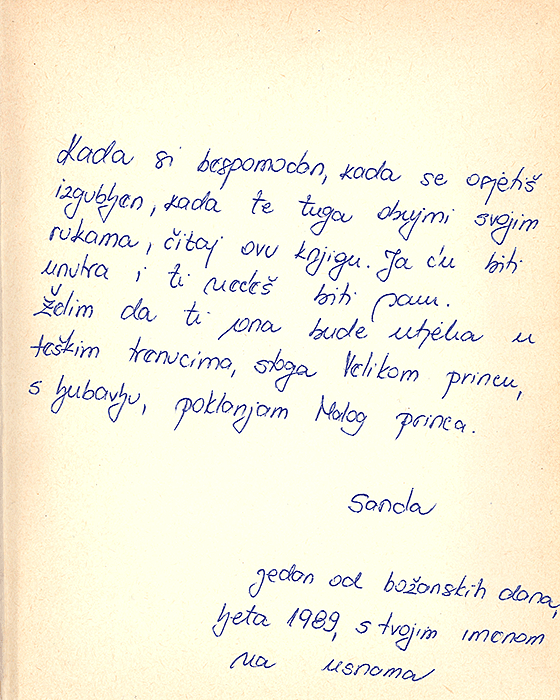 Kada si bespomoćan, kada se osjetiš
izgubljen, kada te tuga obujmi svojim
rukama, čitaj ovu knjigu. Ja ću biti
unutra i ti nećeš biti sam.
Želim da ti ona bude utjeha u
teškim trenucima, stoga Velikom princu,
s ljubavlju, poklanjam Malog princa.
Sanda
jedan od božanskih dana,
ljeta 1989, s tvojim imenom
na usnama